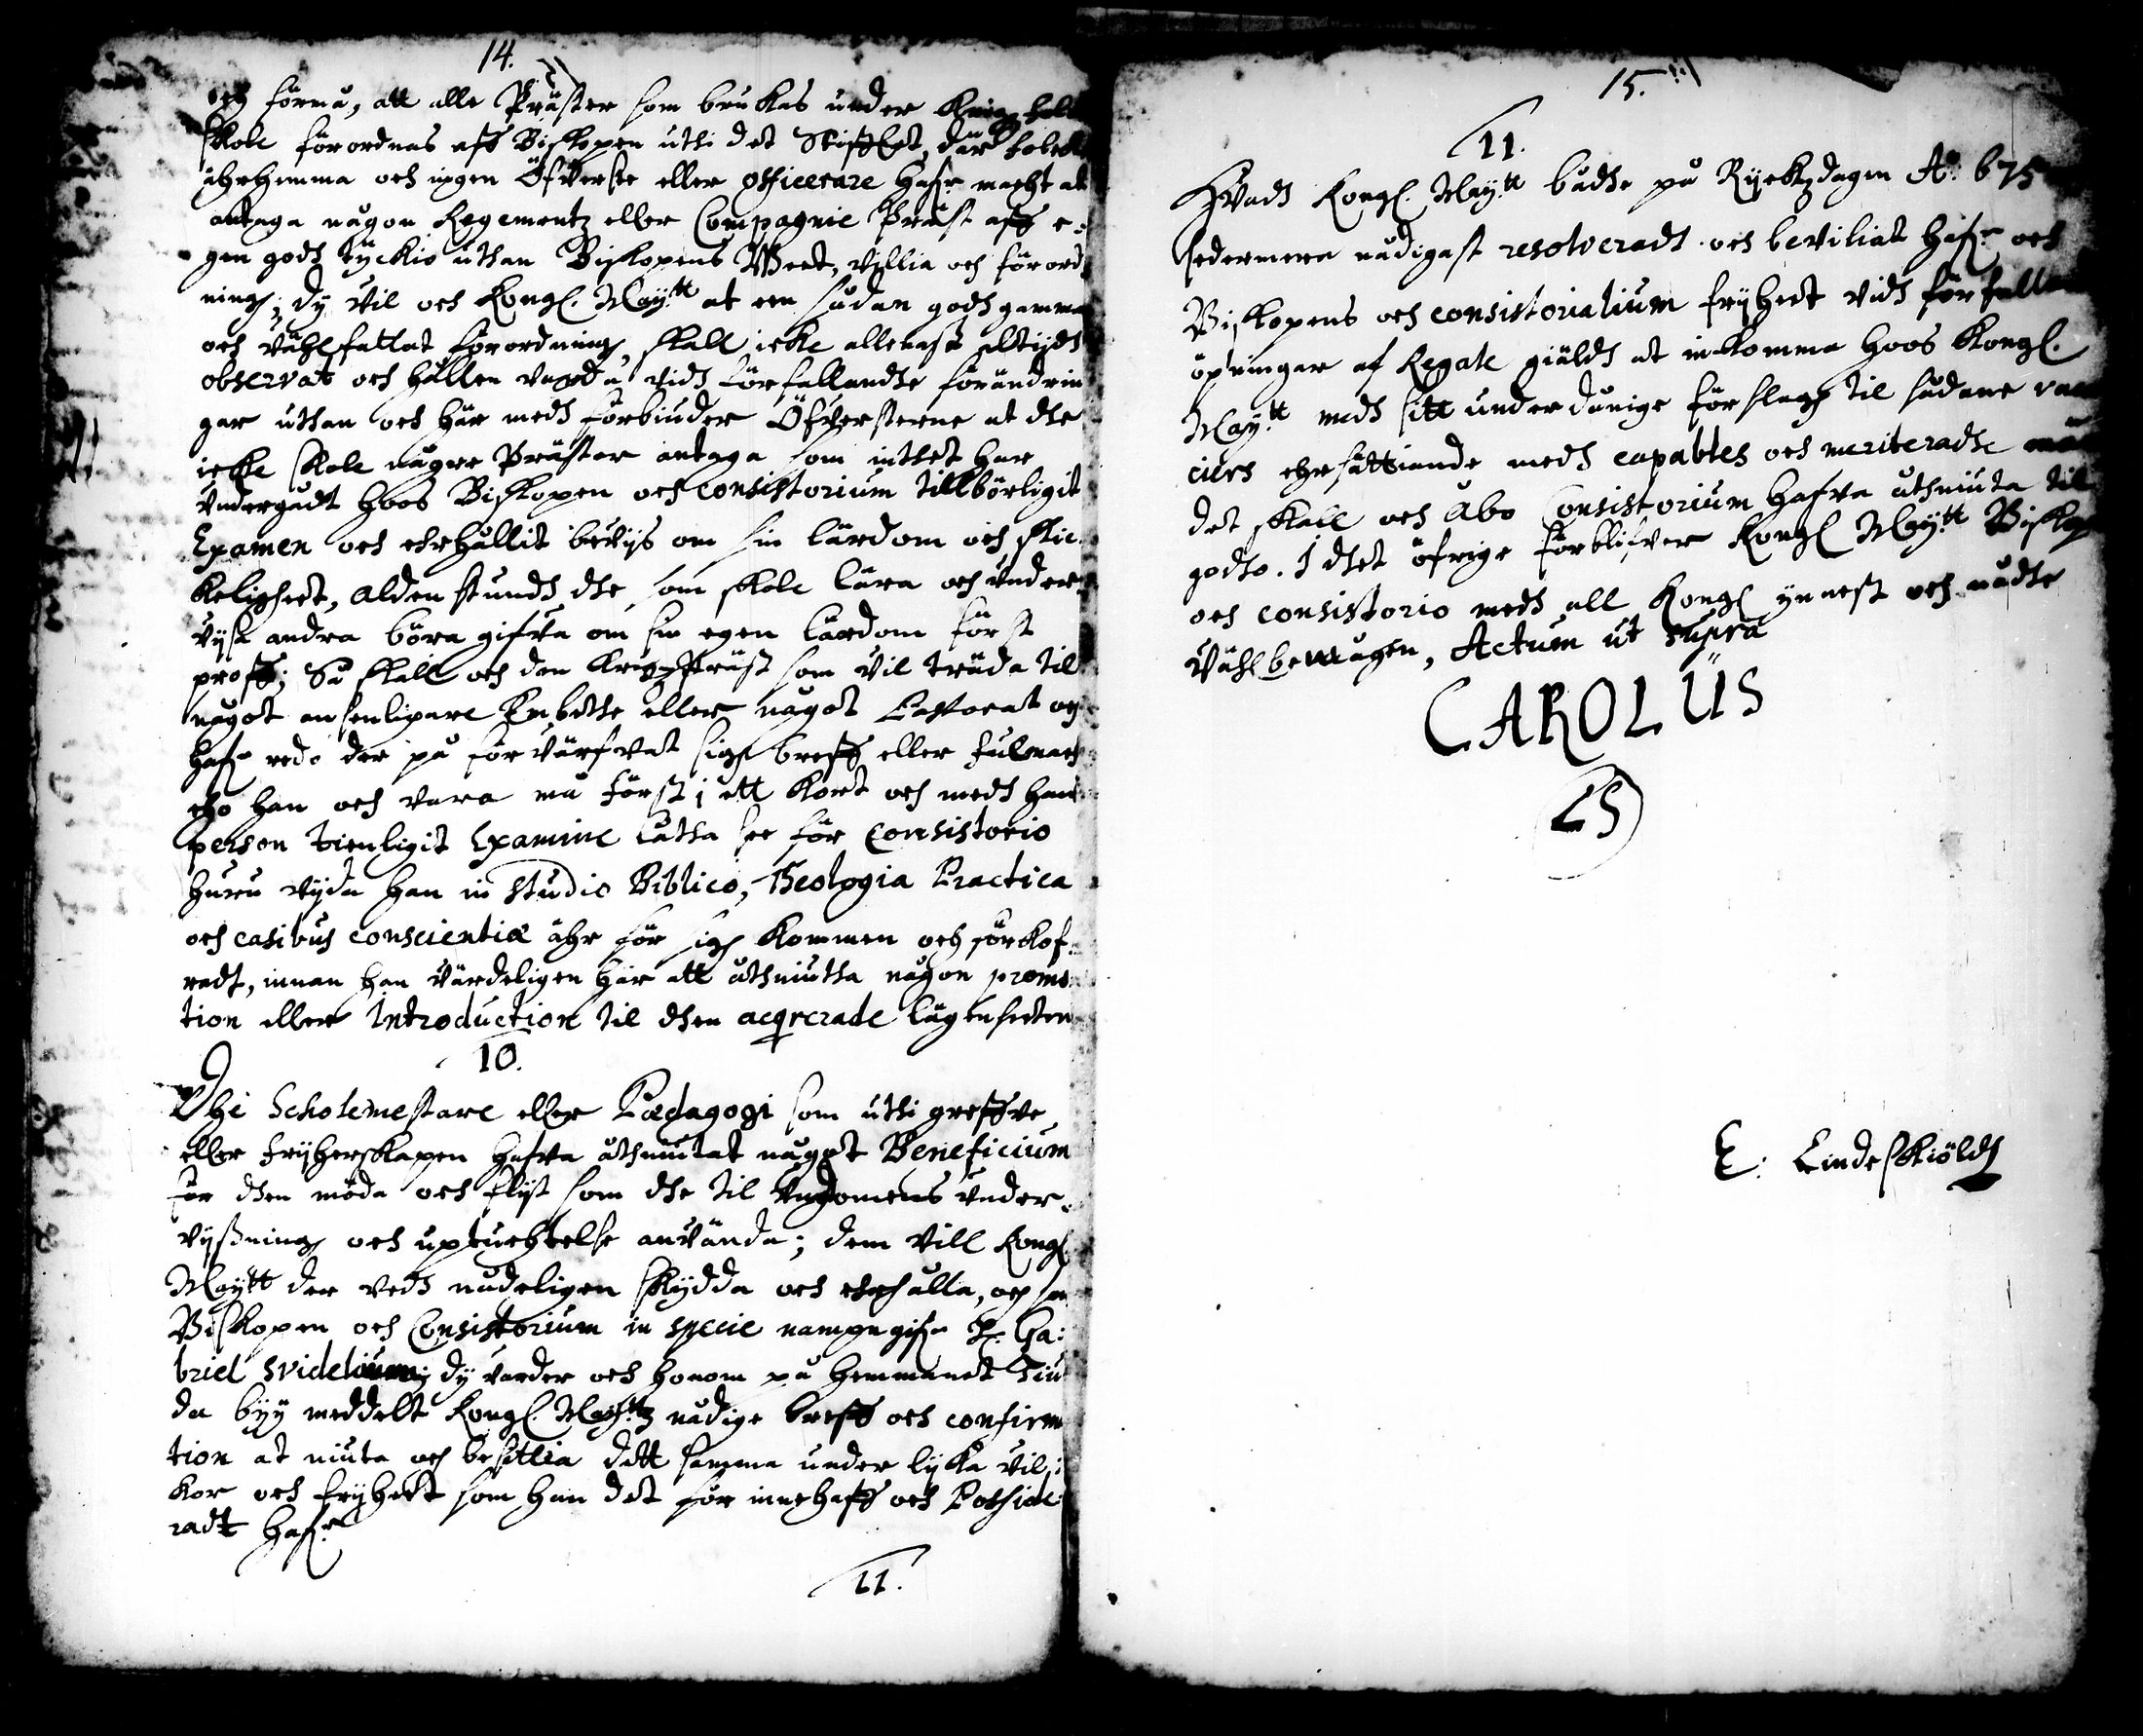 14.
och förmå, att alle Präster som brukas under Krigzfolk
skole förordnas aff Biskopen uthi det Stifftet, där folcket
ähr hemma och ingen Öfverste eller officerare hafr macht at
antaga någon Regementz eller Compagnie Präst aff e-
gen godh tyckio uthan Biskopens Weet, villia och förord-
ningh; dy vil och Kongl. Maÿtt at een sådan godh gammal
och vähl fattat förordningh, skall icke allenast altijdh
observat och hållen varda vidh förfallandhe förändrin
gar uthan och här medh förbiuder Öfversterne at dhe
icke skole någre Präster antaga som inthet har
Undergådt hoos Biskopen och Consistorium tillbörligit
Examen och ehrhållit bevijs om sin lärdom och skic-
keligheet, alden stundh dhe som skole lära och under-
vijsa andra böra gifva om sin egen lärdom först
proff; Så skall och den Krigzpräst som vil träda til
något ansenligare Embethe eller något Pastorat och
hafr redo der på förvärfvat sigh breff eller fulmacht
eho han och vara må först i ett kort och medh hans
person tienligit Examine låtha see för Consistorio
huru vijda han in studio Biblico, Theologia Practica
och casibus conscientiæ ähr för sigh kommen och förkof-
radt, innan han värdeligen här att åthniutha någon promo-
tion eller Introduction til dhen acqverade lägenheeten
10.
Dhe Scholemestare eller Pædagogi som uthi greffve
eller frijherskapen hafva åthniutat något Beneficium
för dhen möda och flijt som dhe til Ungdomens under-
vijsningh och uptuchtelse använda; dem vill Kongl.
Maÿtt der vedh nådeligen skydda och ehrhålla, och som
Biskopen och Consistorium in specie nampngifr H. Ga-
briel Svidelium; dy varder och honom på hemmanet Tiu
da byy meddelt Kongl. Maÿttz nådige breff och confirma
tion at niuta och besittia dett samma under lijka vil-
kor och frijheet som han det för innehafft och Posside-
radt hafr
11.
15.
11.
Hvadh Kongl. Maÿtt bådhe på Rijckzdagen Ao. 675
sedermera nådigast resolveradt och beviliat hafr och
Biskopens och consistorialium frijheet vidh förfallne
öpningar af Regale giäldh at inkomma hoos Kongl.
Maÿtt medh sitt underdånige förslagh til sådane van
ciers ehrsättiande medh capables och meriteradhe män
det skall och Åbo Consistorium hafva åthniuta til
godho. I dhet öfrige förblifver Kongl Maÿtt Biskop
och consistorio medh all Kongl ynnest och nådhe
vähl bewågen, Actum ut supra
CAROLUS
LS
E: Lindeskiöldh